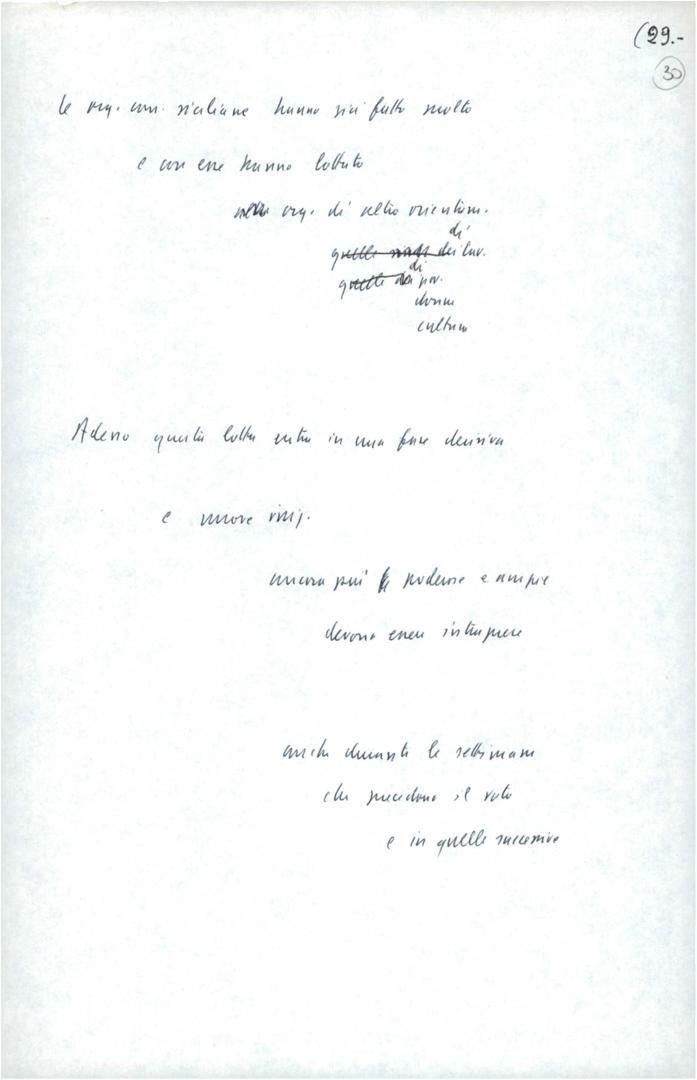 (29.-
30
le org. com. siciliane hanno già fatto molto
e con esse hanno lottato
altre org. di altro orientam.
di
quelle dei lav.
di
quelle dei giov.
donne
cultura
Adesso questa lotta entra in una fase decisiva
e nuove iniz.
ancora più poderose e ampie
devono essere intraprese
anche durante le settimane
che precedono il voto
e in quelle successive